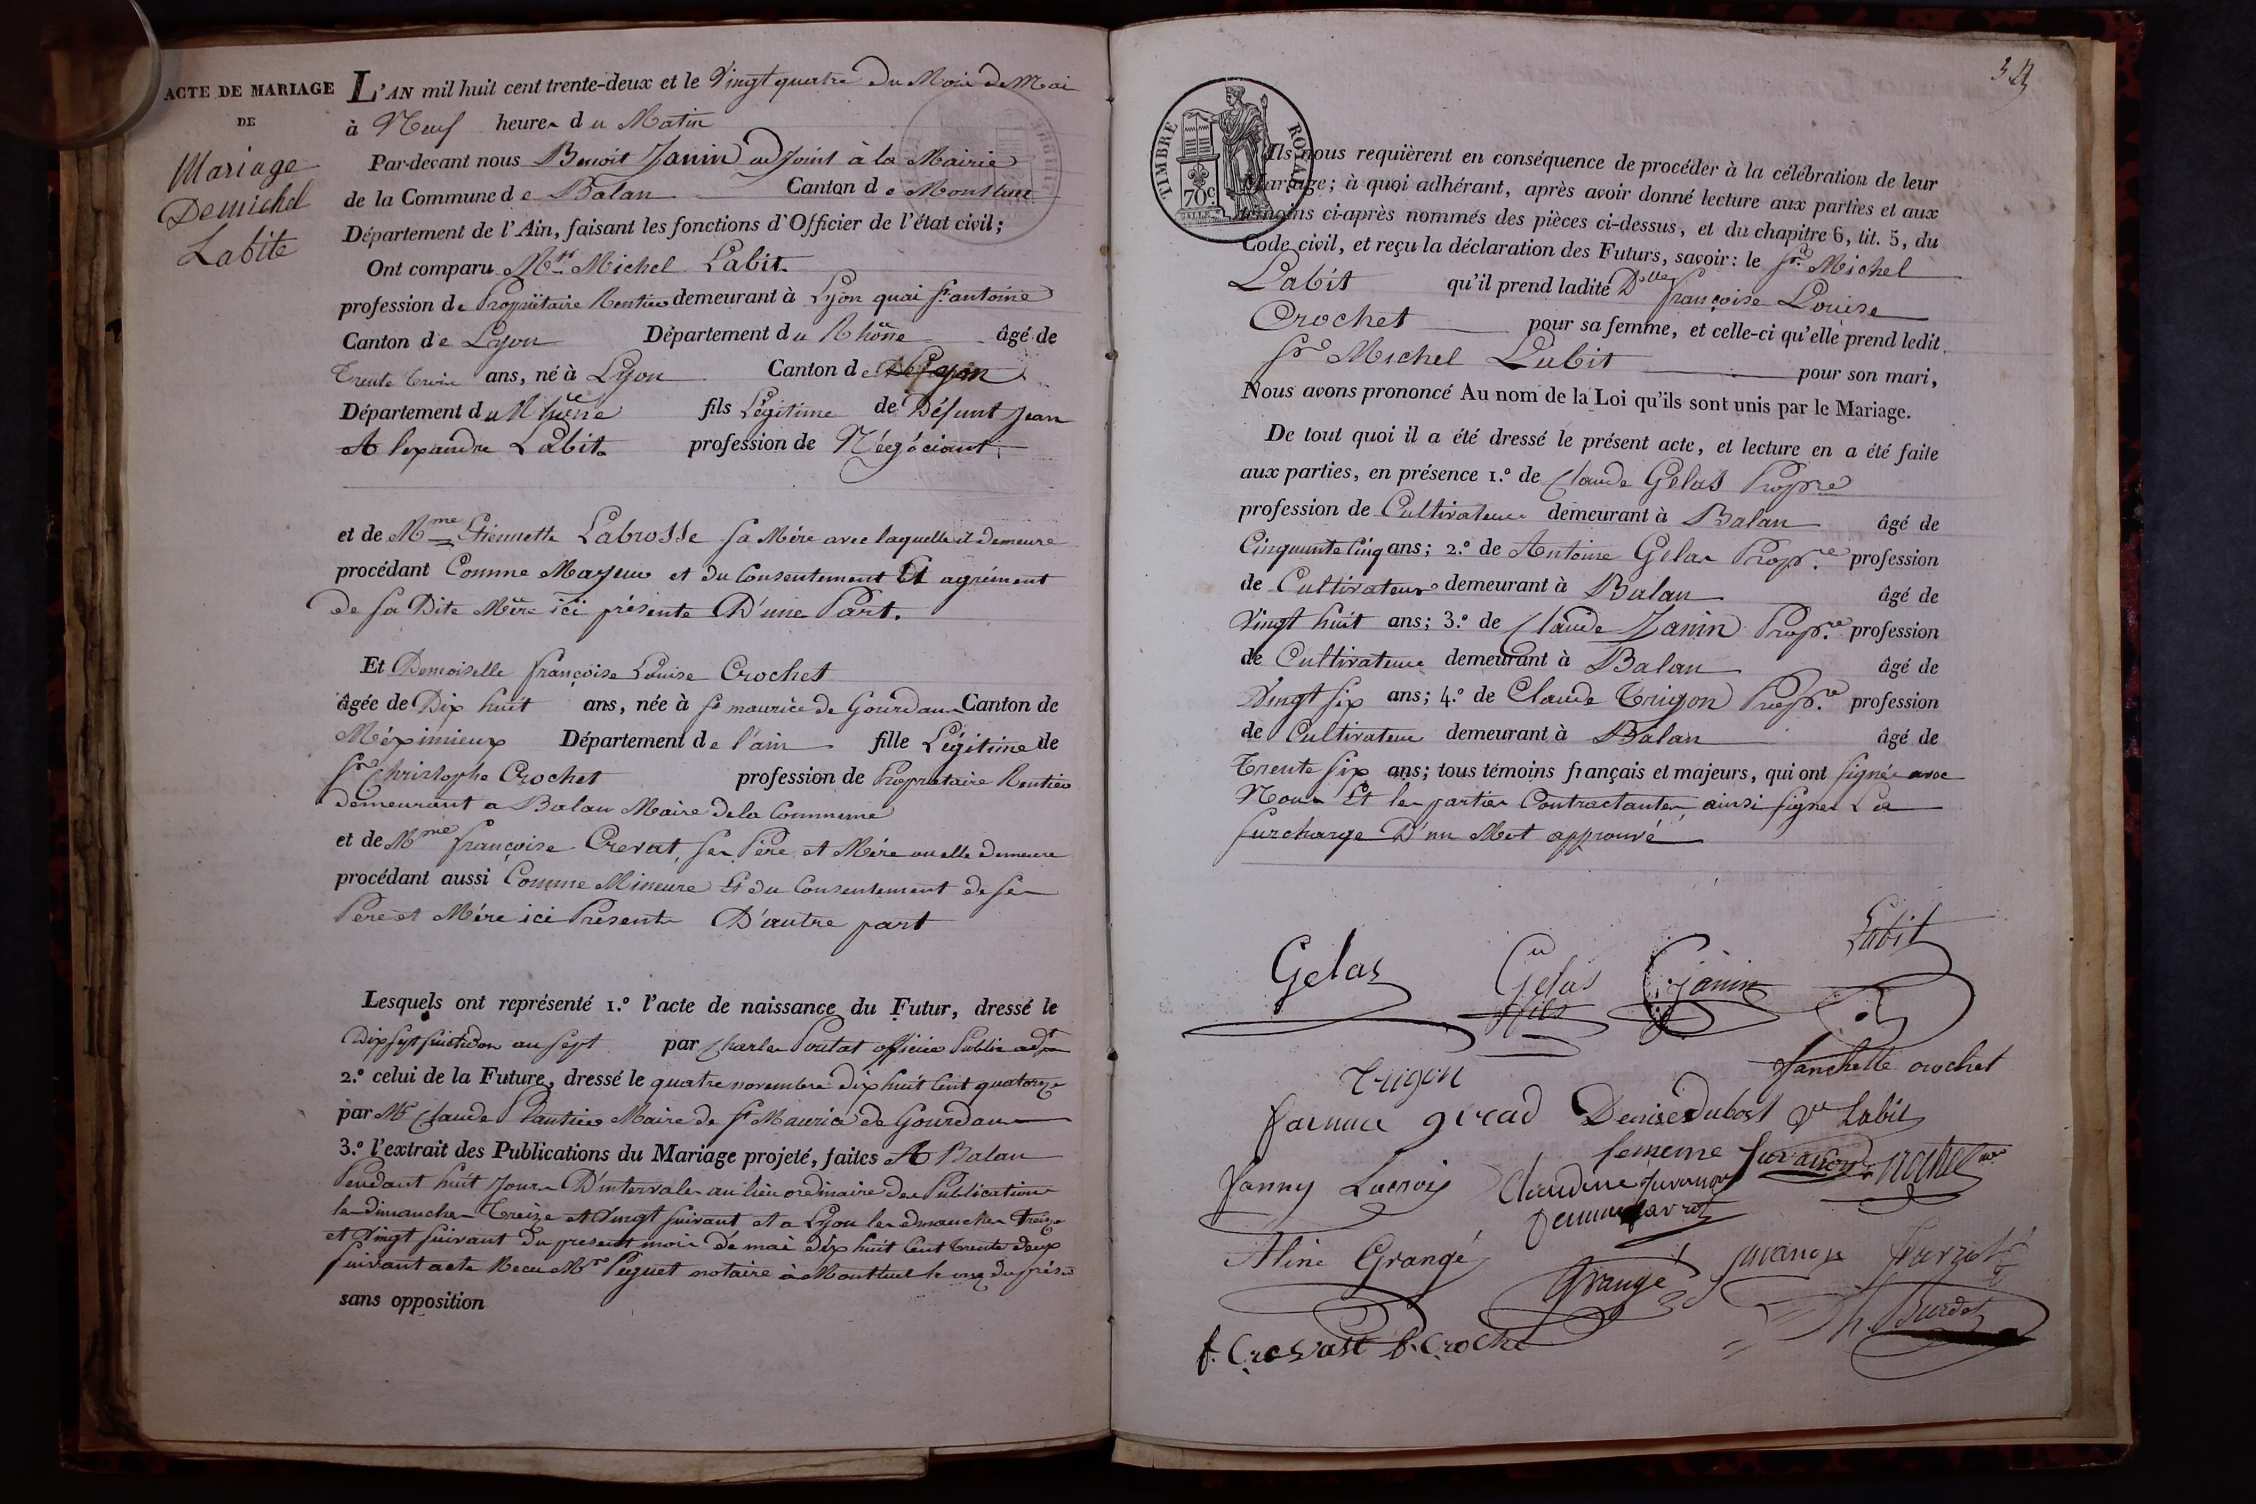 ACTE DE MARIAGE
DE
Mariage
De michel
Labite
L'AN mil huit cent trente-deux et le Vingt quatre du Mois de Mai
à Neuf heures du Matin
Par-devant nous Benoit Janin adjoint à la Mairie
de la Commune de Balan Canton de Montluel
Département de l'Ain, faisant les fonctions d'Officier de l'état civil;
Ont comparu Mr Michel Labit
profession de Propriétaire Rentier demeurant à Lyon quai St antoine
Canton de Lyon Département du Rhône âgé de
Trente trois ans, né à Lyon Canton de Lyon
Département du Rhône fils Légitime de Défunt Jean
Alexandre Labit profession de Négociant
et de Mme Etiennette Labrosse sa Mère avec laquelle il demeure
procédant Comme Majeur et du Consentement Et agrément
de sa Dite Mère ici présente D'une Part.
Et Demoiselle françoise Louise Crochet
âgée de Dix huit ans, née à St maurice de Gourdans Canton de
Méximieux Département de l'ain fille Légitime de
Sr Christophe Crochet profession de Propriétaire Rentier
demeurant a Balan Maire de la Commune
et de Mme françoise Crevat ses Père et Mère ou elle demeure
procédant aussi Comme Mineure Et du Consentement de ses
Père et Mère ici Présents D'autre part
Lesquels ont représenté 1.º l'acte de naissance du Futur, dressé le
Dix sept fructidor an sept par Charles officier Public adt
2.º celui de la Future, dressé le quatre novembre dix huit Cent quatorze
par Mr Claude Plantier Maire de St Maurice de Gourdans
3.º l'extrait des Publications du Mariage projeté, faites A Balan
Pendant huit Jours D'intervale au lieu ordinaire des Publications
les dimanches Treize et Vingt suivant et a Lyon les dimanches Treize
et Vingt suivant du present mois de mai dix huit Cent trente deux
suivant acte Recu Mre Piguet notaire à Montluel le onze du présent
sans opposition
34
TIMBRE ROYAL
70 c.
Ils nous requièrent en conséquence de procéder à la célébration de leur
Mariage; à quoi adhérant, après avoir donné lecture aux parties et aux
témoins ci-après nommés des pièces ci-dessus, et du chapitre 6, tit. 5, du
Code civil, et reçu la déclaration des Futurs, savoir: le Sr Michel
Labit qu'il prend ladite Dlle françoise Louise
Crochet pour sa femme, et celle-ci qu'elle prend ledit
Sr Michel Labit pour son mari,
Nous avons prononcé Au nom de la Loi qu'ils sont unis par le Mariage.
De tout quoi il a été dressé le présent acte, et lecture en a été faite
aux parties, en présence 1.º de Claude Gelas Propre
profession de Cultivateur demeurant à Balan âgé de
Cinquante Cinq ans; 2.º de Antoine Gelas Propre profession
de Cultivateur demeurant à Balan âgé de
Vingt huit ans; 3.º de Claude Janin Propre profession
de Cultivateur demeurant à Balan âgé de
Vingt six ans; 4.º de Claude Trigon Propre profession
de Cultivateur demeurant à Balan âgé de
Trente six ans; tous témoins français et majeurs, qui ont signés avec
Nous Et les parties Contractantes, ainsi signes La
surcharge D'un Mot approuvé
Labit
Gelas Gelas fils C janin
fanchette crochet
Trigon
girad Denise Dubost ve Labit
Fanny Lacroix Claudine Juvanon
Aline Grangé
Grangé juvanon
Burdet
f. Crevast